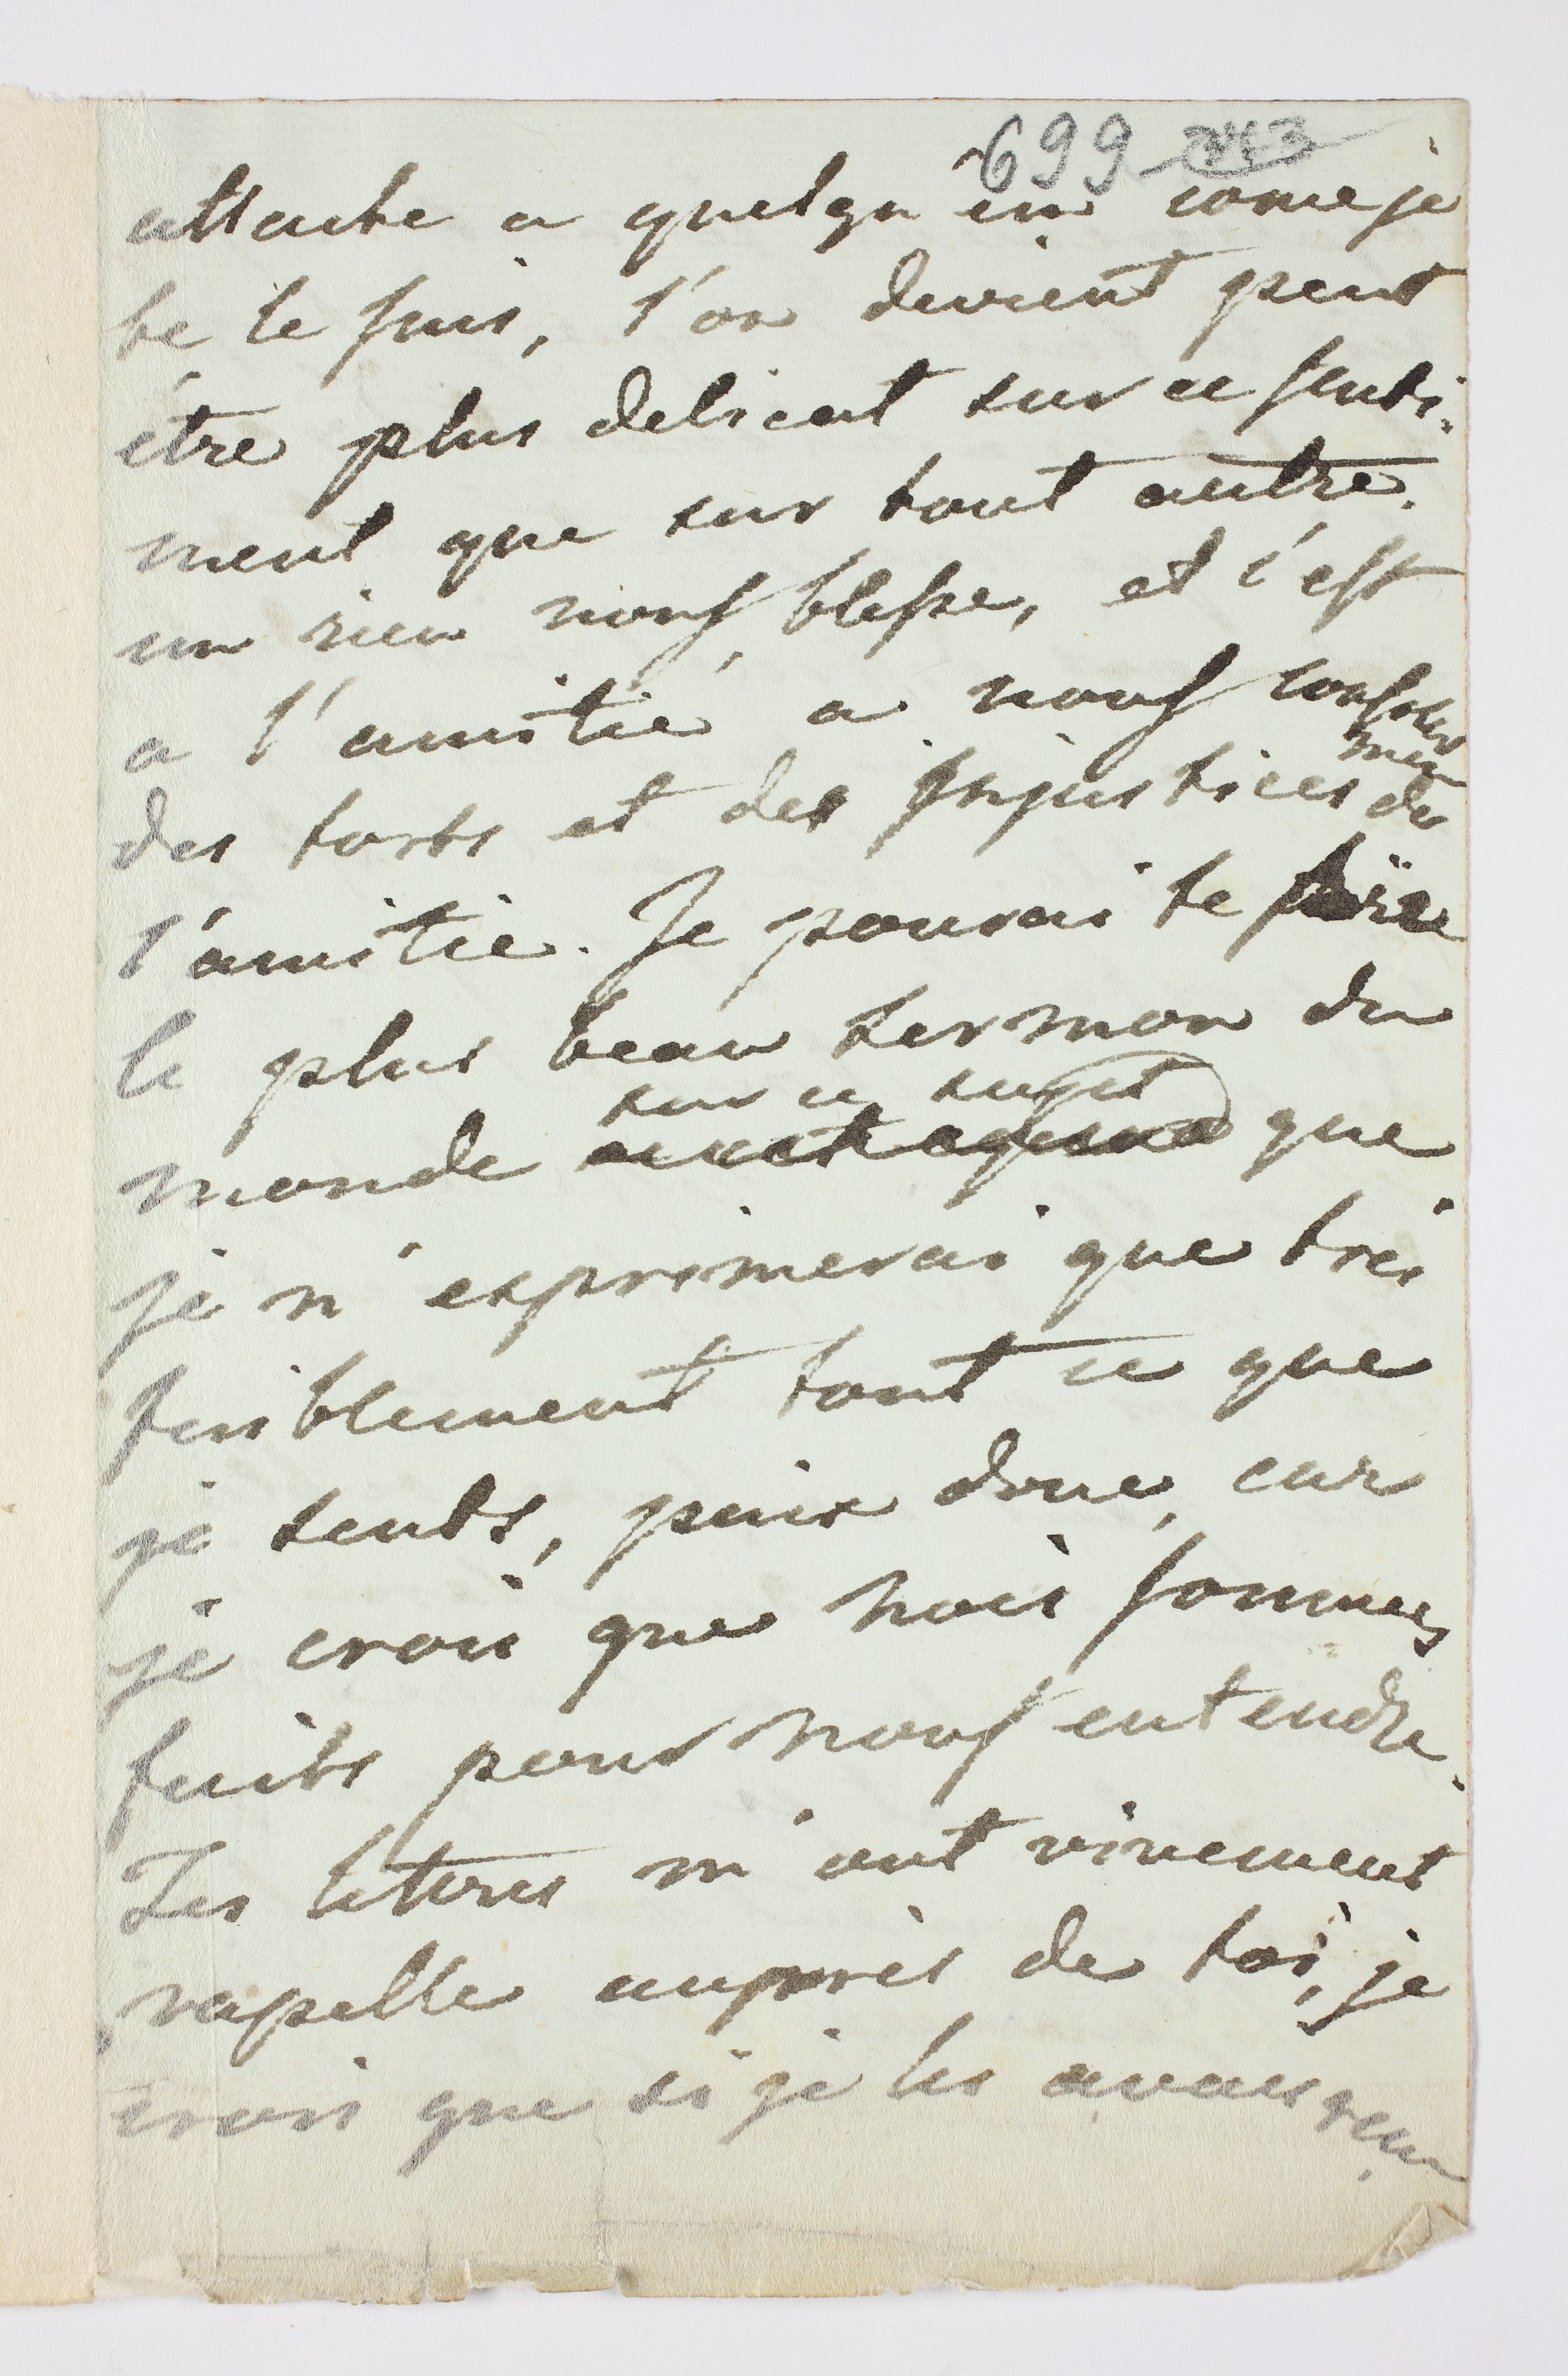 699 743
attache a quelqu un come je
te le suis, l'on devient peut
être plus delicat sur ce senti-
ment que sur tout autre.
un rien nous blesse, et c'est
a l'amitié a nous consoler
même
des torts et des injustices de
l'amitié. Je pourai te faire
le plus beau sermon du
sur ce sujet
monde que
je n'exprimerai que tres
faiblement tout ce que
je sents, paix donc, car
je crois que nous sommes
faits pour nous entendre.
Tes lettres m'ont vivement
rapelle auprès de toi, je
crois que si je les avais recu